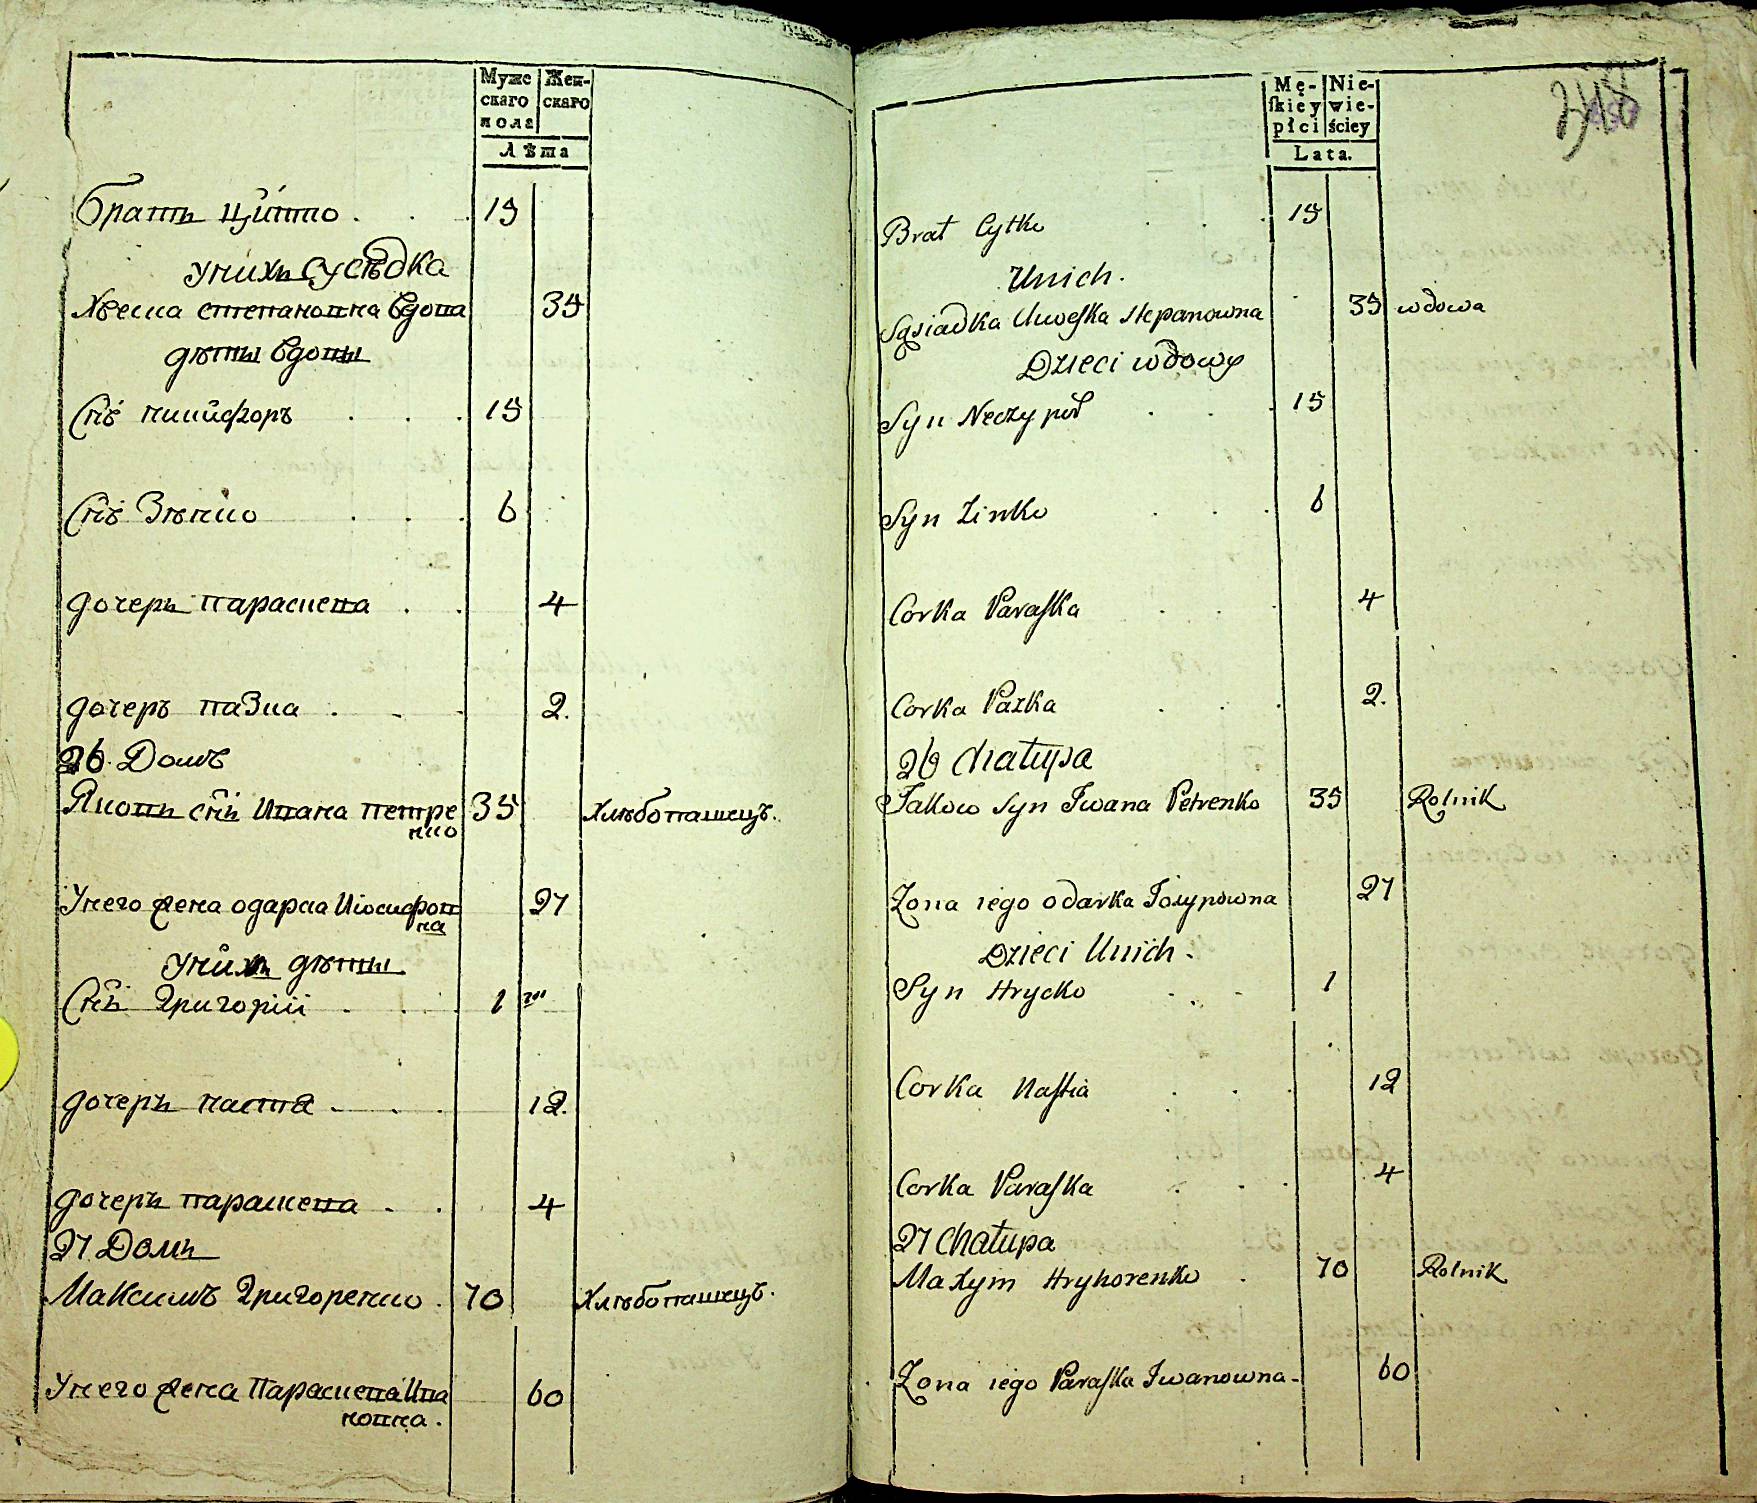 Муже
скаго
пола
Жен-
скаго
Лѣта
братъ Цитко 15
Унихъ Сусѣдка
Хвеска степановна вдова 35
дѣти вдовы
Снъ никифоръ 15
Снъ Зѣнко 6
дочеръ параскева 4
дочеръ пазка 2.
26. Домъ
Яковъ снъ Ивана петре 35 Хлѣбопашецъ.
нко
Унего жена одарка Иосифов 27
на
Унихъ дѣти
Снъ Григорій 1
дочеръ настя 12.
дочеръ параскева 4
27 Домъ
Максимъ Григоренко 70 Хлѣбопашецъ.
Унего жена Параскева Ива 60
новна.
Mę-
skiey
płci
Nie-
wie-
ściey
Lata.
Brat Cytko 15
Unich.
Sąsiadka Chweska Stepanowna 35 wdowa
Dzieci wdowy
Syn Neczypor 15
Syn Zinko 6
Corka Paraska 4
Corka Pazka 2.
26 Chatupa
Jakow Syn Iwana Petrenko 35 Rolnik
Zona iego odarka Iozypowna 27
Dzieci Unich.
Syn Hrycko 1
Corka Nastia 12
Corka Paraska 4
27 Chatupa
Maxym Hryhorenko 70 Rolnik
Zona iego Paraska Iwanowna 60